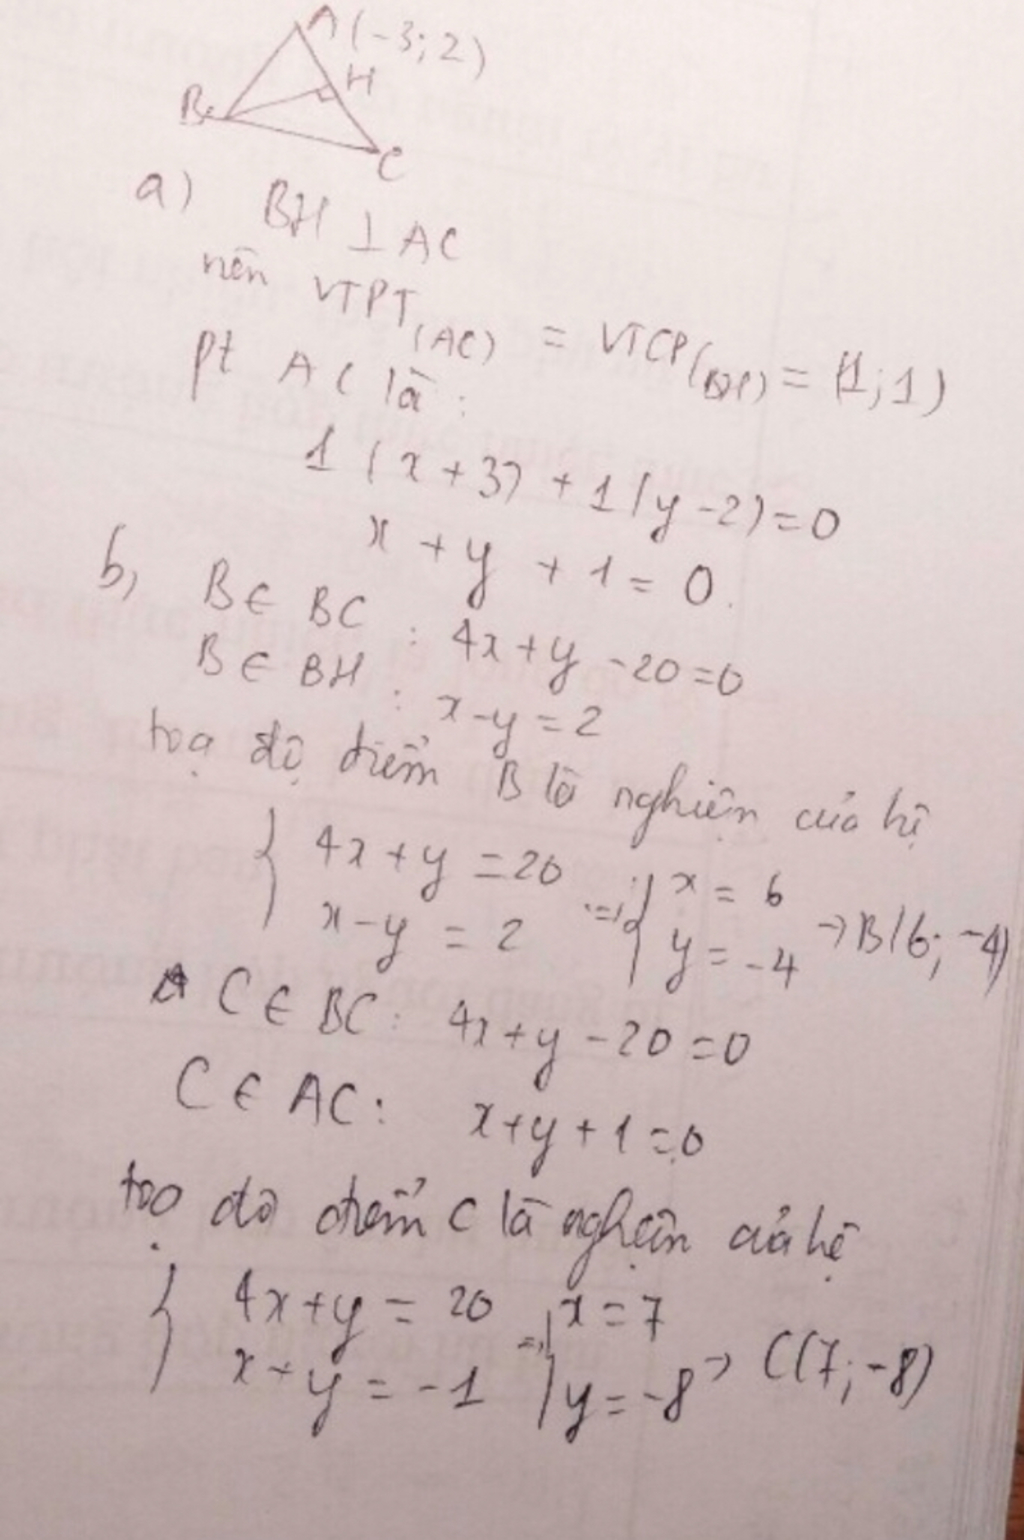 A(-3; 2)
H
B
C
a) BH ⊥ AC
nên VTPT(AC) = VTCP(BH) = (1; 1)
pt AC là:
1(x+3) + 1(y-2) = 0
x + y + 1 = 0.
b, B ∈ BC : 4x + y - 20 = 0
B ∈ BH : x - y = 2
toạ độ điểm B là nghiệm của hệ
{ 4x + y = 20
x - y = 2 => { x = 6
y = -4 → B(6; -4)
C ∈ BC: 4x + y - 20 = 0
C ∈ AC: x + y + 1 = 0
toạ độ điểm C là nghiệm của hệ
{ 4x + y = 20
x + y = -1 => { x = 7
y = -8 → C(7; -8)